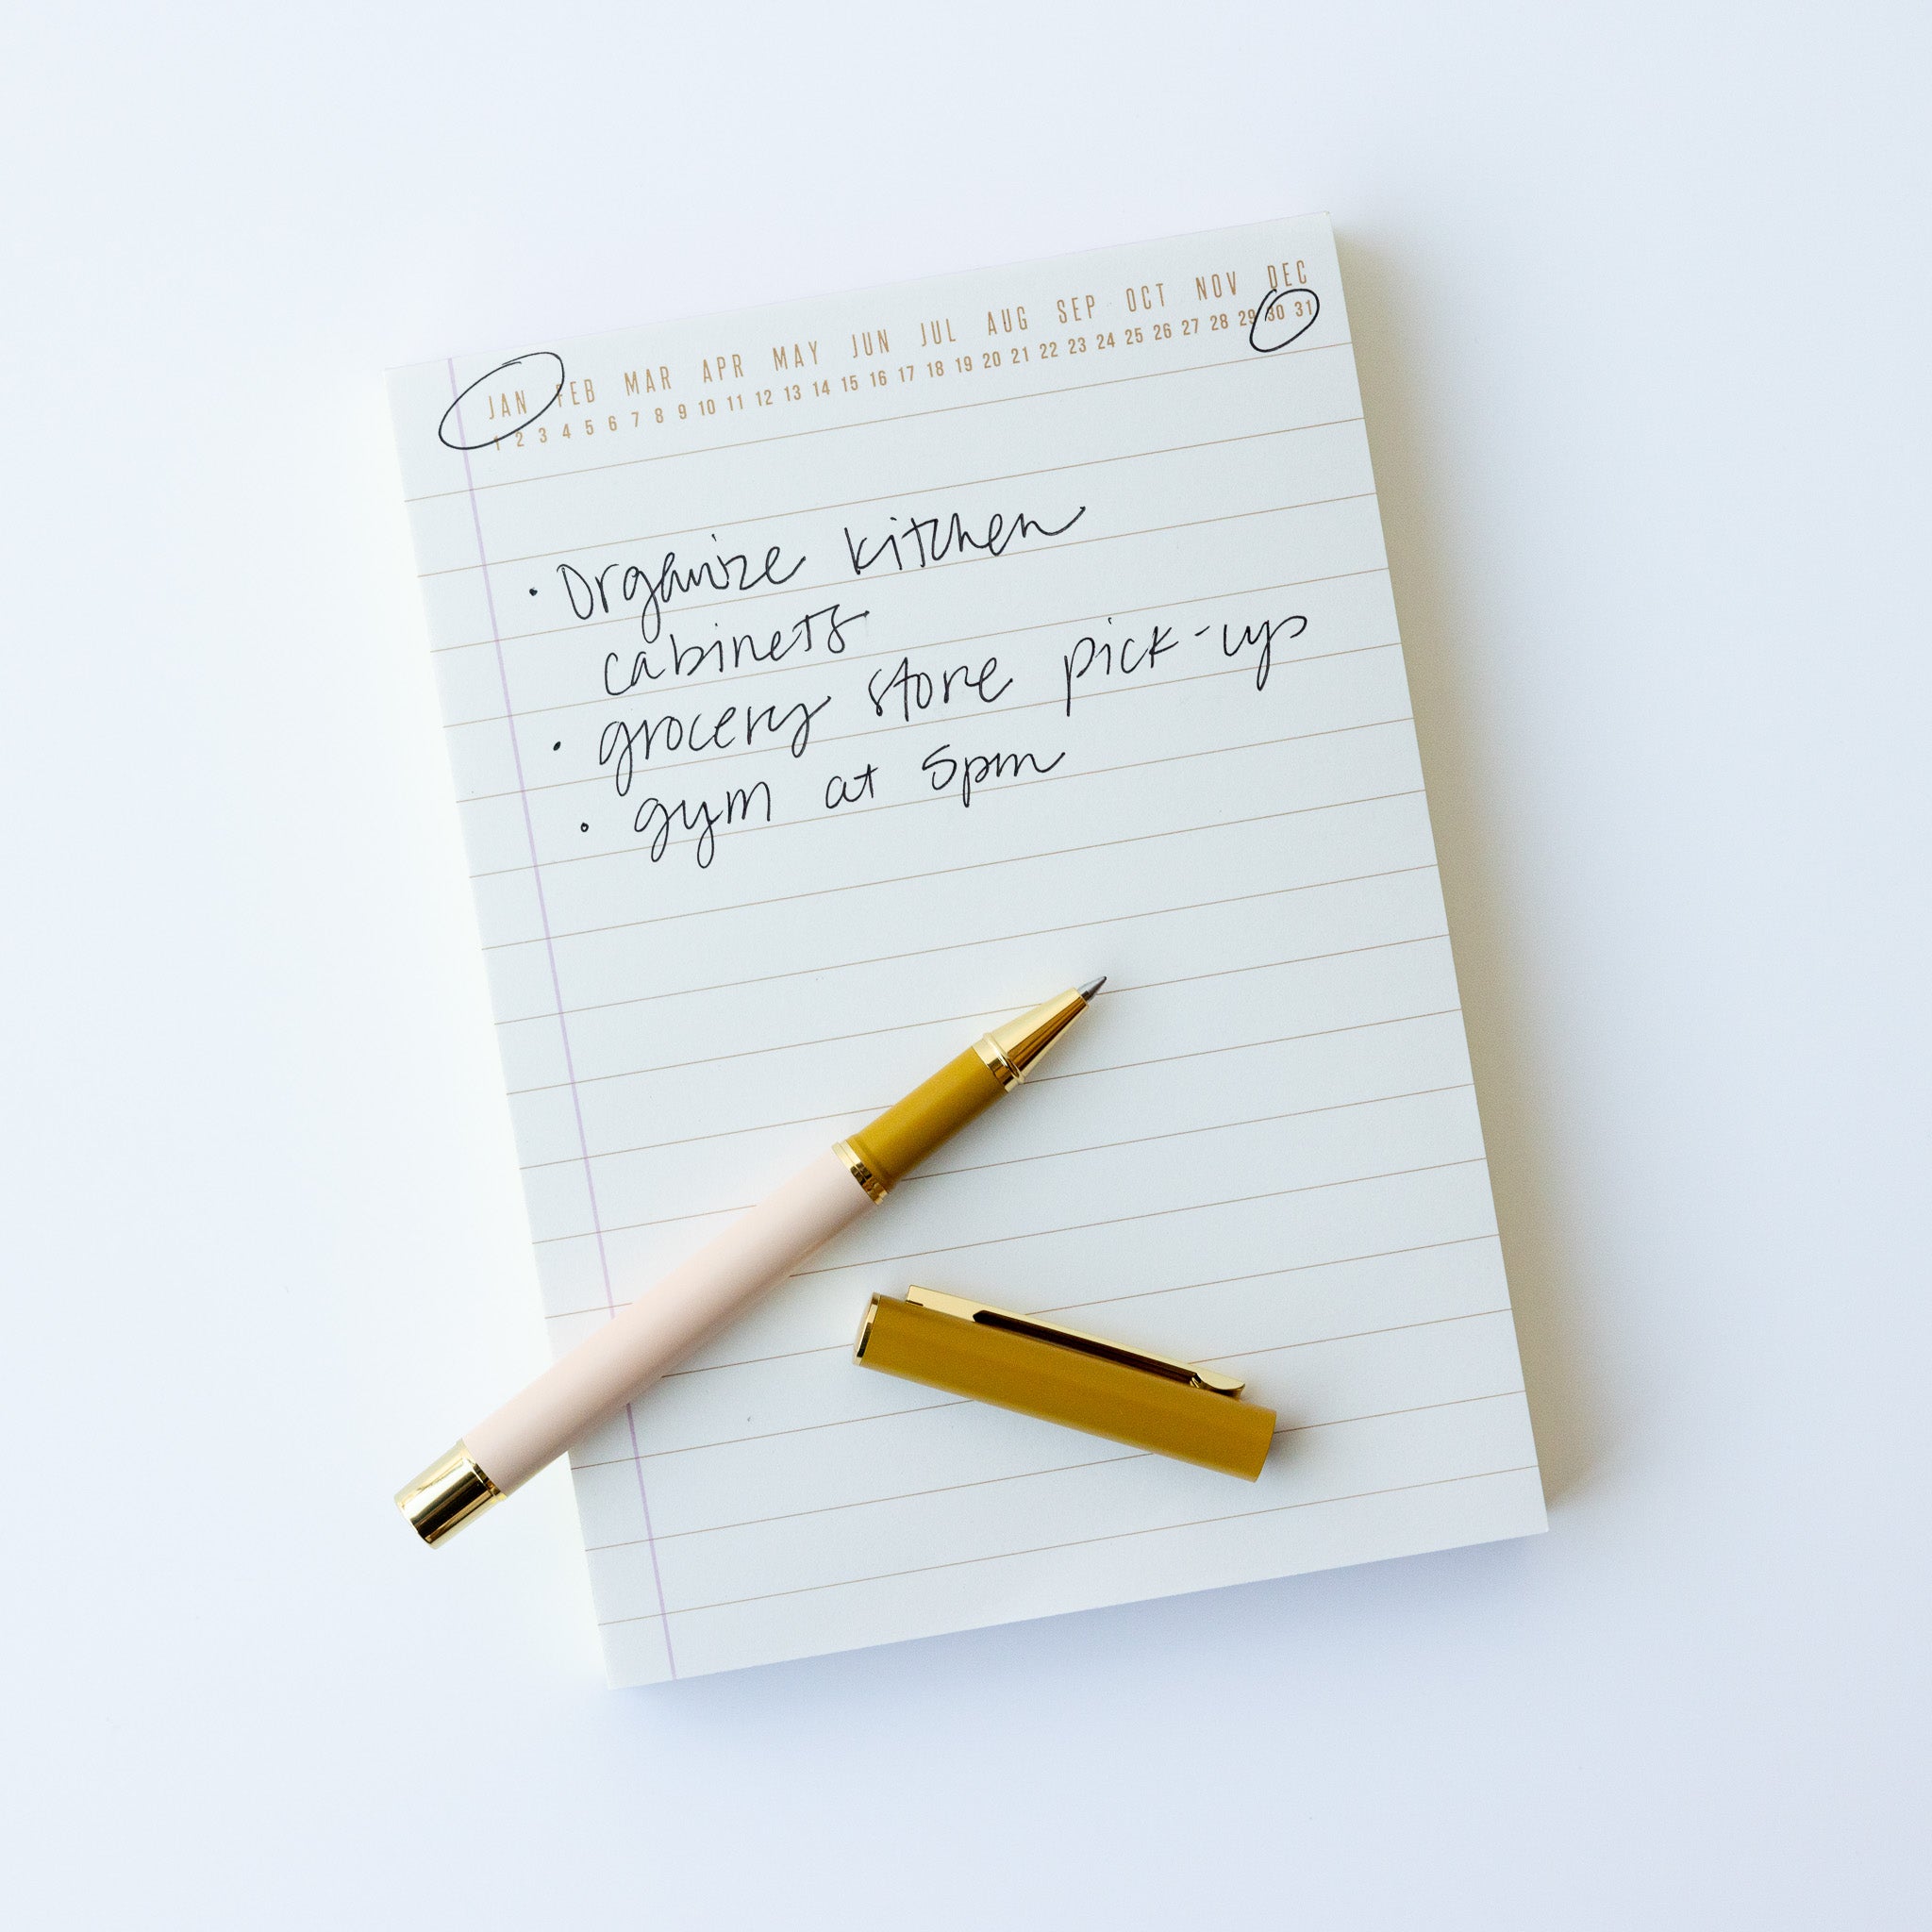 JAN FEB MAR APR MAY JUN JUL AUG SEP OCT NOV DEC
1 2 3 4 5 6 7 8 9 10 11 12 13 14 15 16 17 18 19 20 21 22 23 24 25 26 27 28 29 30 31
• Organize kitchen
cabinets
• grocery store pick-up
• gym at 5pm